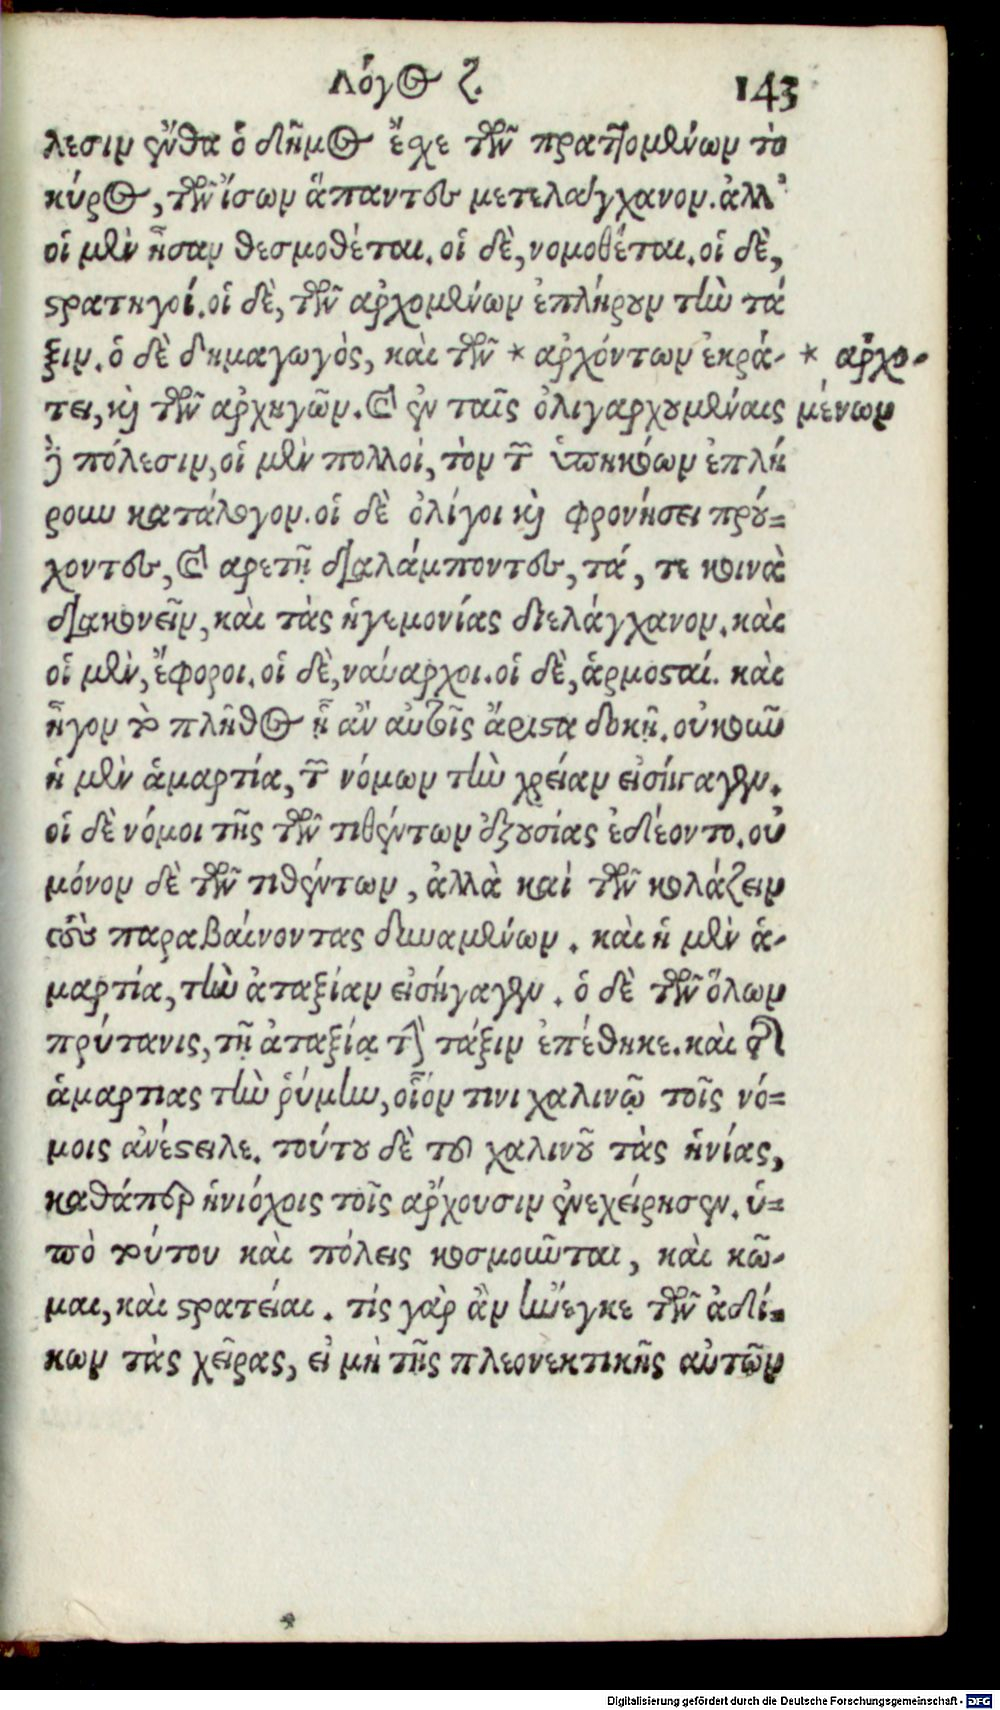 Λόγος ζ. 143
λεσιν ἔνθα ὁ δῆμος ἔχε τῶν πραττομένων τὸ
κύρος, τῶν ἴσων ἅπαντες μετελάγχανον. ἀλλ'
οἱ μὲν ἦσαν θεσμοθέται. οἱ δὲ, νομοθέται. οἱ δὲ,
στρατηγοί. οἱ δὲ, τῶν ἀρχομένων ἐπλήρουν τὴν τά
ξιν. ὁ δὲ δημαγωγὸς, καὶ τῶν * ἀρχόντων ἐκρά- * ἀρχο-
τει, καὶ τῶν ἀρχηγῶν. καὶ ἐν ταῖς ὀλιγαρχουμέναις μένων
πόλεσιν, οἱ μὲν πολλοὶ, τὸν τῶν ὑπηκόων ἐπλή
ρουν κατάλογον. οἱ δὲ ὀλίγοι καὶ φρονήσει πρού=
χοντες, καὶ ἀρετῇ διαλάμποντες, τά, τε κοινὰ
διακονεῖν, καὶ τὰς ἡγεμονίας διελάγχανον. καὶ
οἱ μὲν, ἔφοροι. οἱ δὲ, ναύαρχοι. οἱ δὲ, ἁρμοσταί. καὶ
ἦγον τὸ πλῆθος ᾗ ἂν αὐτοῖς ἄριστα δοκῇ. οὐκοῦν
ἡ μὲν ἁμαρτία, τῶν νόμων τὴν χρείαν εἰσήγαγεν.
οἱ δὲ νόμοι τῆς τῶν τιθέντων ἐξουσίας ἐδέοντο. οὐ
μόνον δὲ τῶν τιθέντων, ἀλλὰ καὶ τῶν κολάζειν
τοὺς παραβαίνοντας δυναμένων. καὶ ἡ μὲν ἁ-
μαρτία, τὴν ἀταξίαν εἰσήγαγεν. ὁ δὲ τῶν ὅλων
πρύτανις, τῇ ἀταξίᾳ τὴν τάξιν ἐπέθηκε. καὶ τῆς
ἁμαρτίας τὴν ῥύμην, οἷόν τινι χαλινῷ τοῖς νό=
μοις ἀνέστειλε. τούτου δὲ τοῦ χαλινοῦ τὰς ἡνίας,
καθάπερ ἡνιόχοις τοῖς ἄρχουσιν ἐνεχείρησεν. ὑ=
πὸ τούτου καὶ πόλεις κοσμοῦνται, καὶ κῶ-
μαι, καὶ στρατείαι. τίς γὰρ ἂν ἤνεγκε τῶν ἀδί=
κων τὰς χεῖρας, εἰ μὴ τῆς πλεονεκτικῆς αὐτῶν
Digitalisierung gefördert durch die Deutsche Forschungsgemeinschaft - DFG